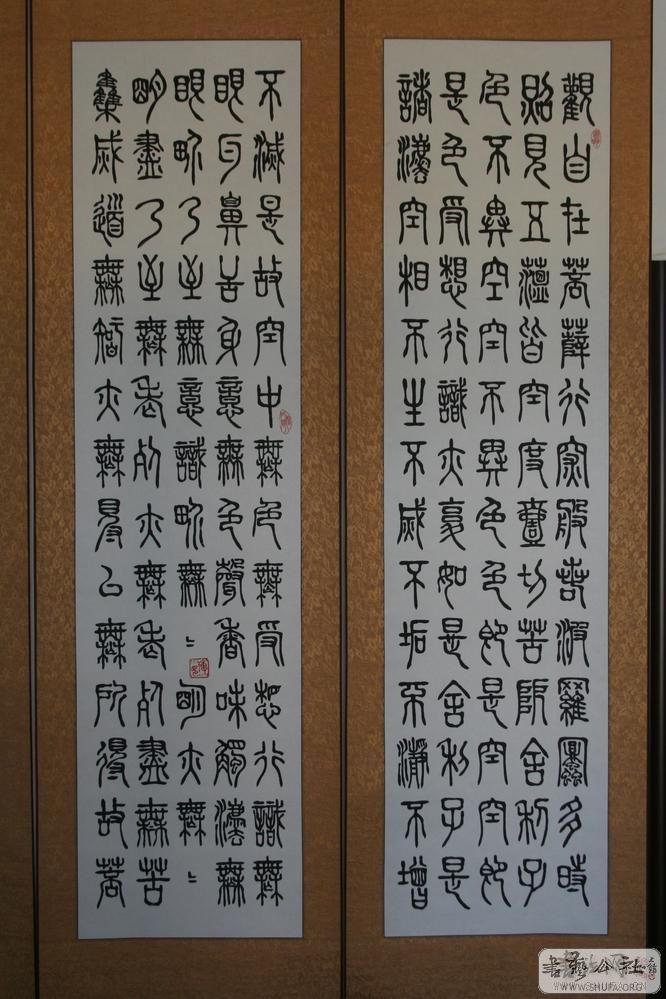 觀自在菩薩行深般若波羅蜜多時
照見五蘊皆空度壹切苦厄舍利子
色不異空空不異色色即是空空即
是色受想行識亦復如是舍利子是
諸灋空相不生不滅不垢不瀞不增
不減是故空中無色無受想行識無
眼耳鼻舌身意無色聲香味觸灋無
眼界乃至無意識界無〻明亦無〻
明盡乃至無老死亦無老死盡無苦
集滅道無智亦無得以無所得故菩
書藝公社
WWW.SHUFA.ORG